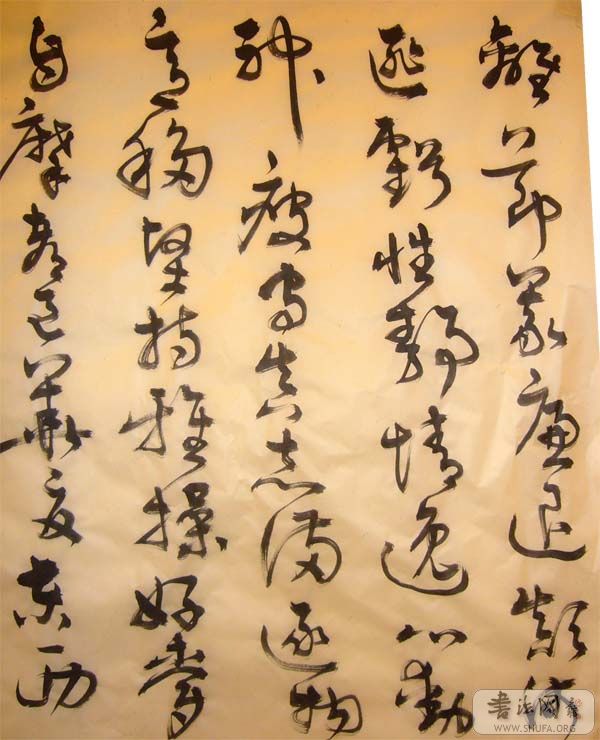 離節義廉退顛沛
匪虧性靜情逸心動
神疲守真志滿逐物
意移堅持雅操好爵
自縻都邑華夏東西
書法网
WWW.SHUFA.ORG